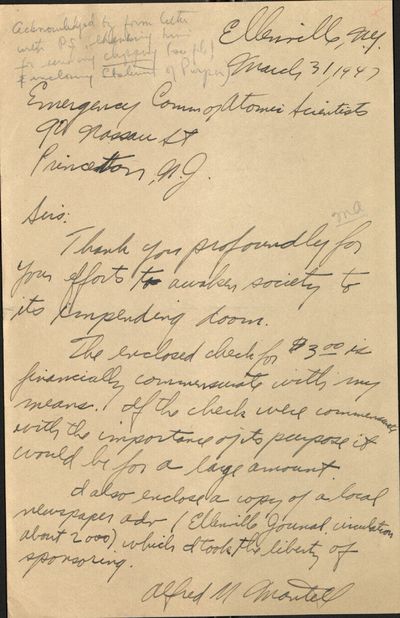 Acknowledged by form letter
with P.S. thanking him
for sending clipping (see file)
& enclosing Statement of Purpose
Ellenville, N.Y.
March 31, 1947
Emergency Comm of Atomic Scientists
90 Nassau St
Princeton, N.J.
Sirs:
Thank you profoundly for
your efforts to awaken society to
its impending doom.
The enclosed check for $3.00 is
financially commensurate with my
means. If the check were commensurate
with the importance of its purpose it
would be for a large amount.
I also enclose a copy of a local
newspaper adv (Ellenville Journal, circulation
about 2000) which I took the liberty of
sponsoring.
Alfred M Mantell